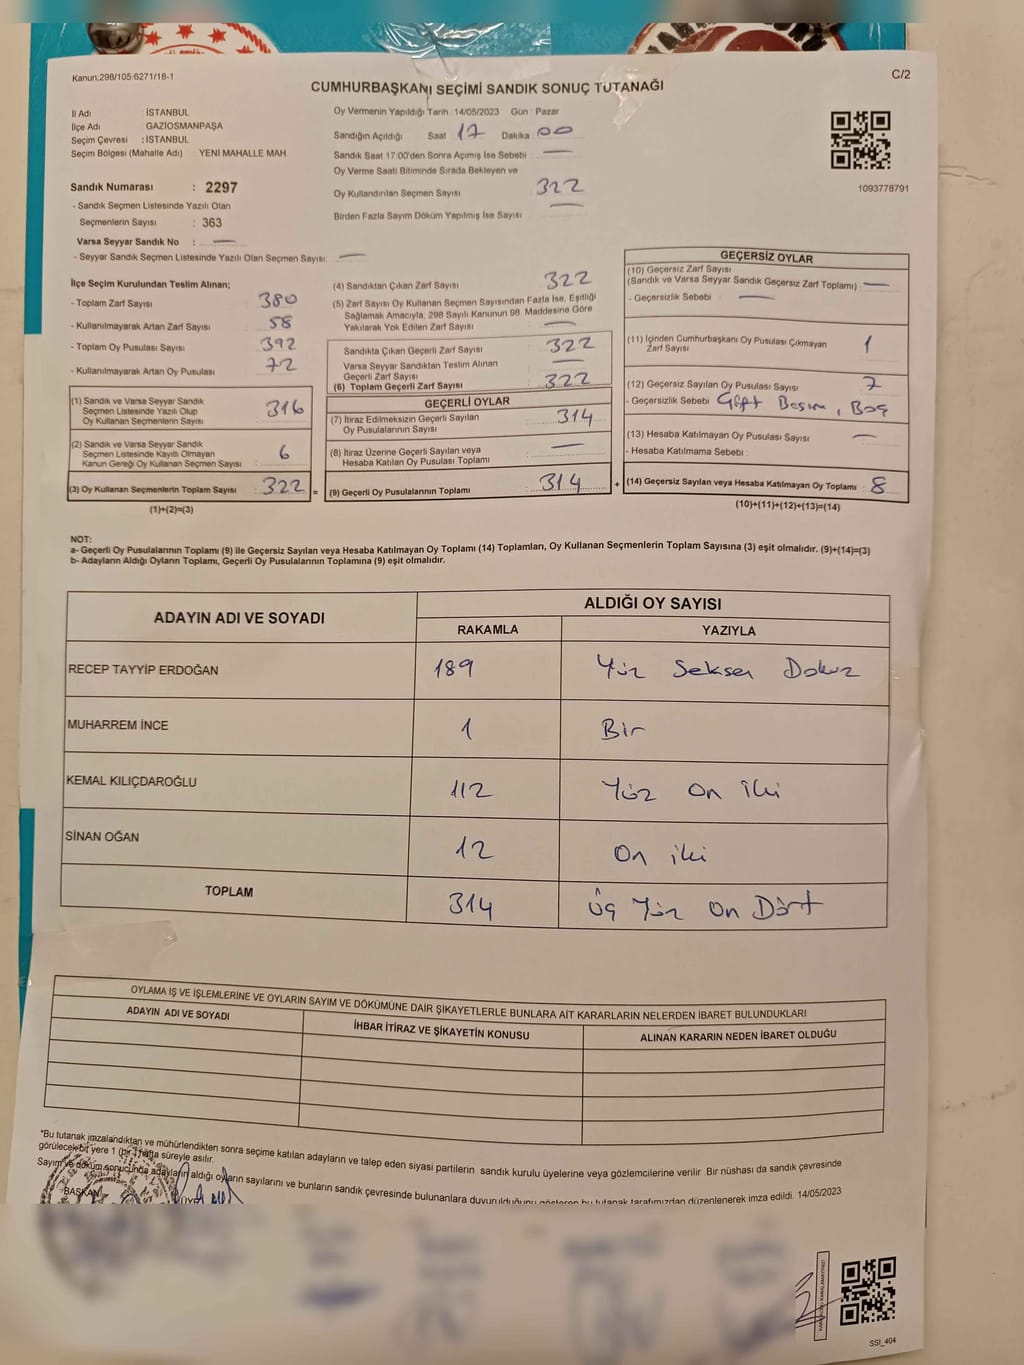 Kanun:298/105 6271/18-1
C/2
CUMHURBAŞKANI SEÇİMİ SANDIK SONUÇ TUTANAĞI
İl Adı İSTANBUL
İlçe Adı GAZİOSMANPAŞA
Seçim Çevresi : İSTANBUL
Seçim Bölgesi (Mahalle Adı) YENİ MAHALLE MAH.
Sandık Numarası : 2297
- Sandık Seçmen Listesinde Yazılı Olan
Seçmenlerin Sayısı : 363
Varsa Seyyar Sandık No : —
- Seyyar Sandık Seçmen Listesinde Yazılı Olan Seçmen Sayısı: —
Oy Vermenin Yapıldığı Tarih : 14/05/2023 Gün : Pazar
Sandığın Açıldığı Saat 17 Dakika 00
Sandık Saat 17:00'den Sonra Açımış İse Sebebi : —
Oy Verme Saati Bitiminde Sırada Bekleyen ve
Oy Kullandırılan Seçmen Sayısı 322
Birden Fazla Sayım Döküm Yapılmış İse Sayısı —
1093778791
İlçe Seçim Kurulundan Teslim Alınan;
- Toplam Zarf Sayısı 380
- Kullanılmayarak Artan Zarf Sayısı 58
- Toplam Oy Pusulası Sayısı 392
- Kullanılmayarak Artan Oy Pusulası 72
(1) Sandık ve Varsa Seyyar Sandık
Seçmen Listesinde Yazılı Olup
Oy Kullanan Seçmenlerin Sayısı 316
(2) Sandık ve Varsa Seyyar Sandık
Seçmen Listesinde Kayıtlı Olmayan
Kanun Gereği Oy Kullanan Seçmen Sayısı 6
(3) Oy Kullanan Seçmenlerin Toplam Sayısı 322 =
(1)+(2)=(3)
(4) Sandıktan Çıkan Zarf Sayısı 322
(5) Zarf Sayısı Oy Kullanan Seçmen Sayısından Fazla İse, Eşitliği
Sağlamak Amacıyla, 298 Sayılı Kanunun 98. Maddesine Göre
Yakılarak Yok Edilen Zarf Sayısı —
Sandıkta Çıkan Geçerli Zarf Sayısı 322
Varsa Seyyar Sandıktan Teslim Alınan
Geçerli Zarf Sayısı —
(6) Toplam Geçerli Zarf Sayısı 322
GEÇERLİ OYLAR
(7) İtiraz Edilmeksizin Geçerli Sayılan
Oy Pusulalarının Sayısı 314
(8) İtiraz Üzerine Geçerli Sayılan veya
Hesaba Katılan Oy Pusulası Toplamı —
(9) Geçerli Oy Pusulalarının Toplamı 314 +
GEÇERSİZ OYLAR
(10) Geçersiz Zarf Sayısı
(Sandık ve Varsa Seyyar Sandık Geçersiz Zarf Toplamı) : —
- Geçersizlik Sebebi : —
(11) İçinden Cumhurbaşkanı Oy Pusulası Çıkmayan
Zarf Sayısı 1
(12) Geçersiz Sayılan Oy Pusulası Sayısı : 7
- Geçersizlik Sebebi : Çift Basım, Boş
(13) Hesaba Katılmayan Oy Pusulası Sayısı —
- Hesaba Katılmama Sebebi :
(14) Geçersiz Sayılan veya Hesaba Katılmayan Oy Toplamı : 8
(10)+(11)+(12)+(13)=(14)
NOT:
a- Geçerli Oy Pusulalarının Toplamı (9) ile Geçersiz Sayılan veya Hesaba Katılmayan Oy Toplamı (14) Toplamları, Oy Kullanan Seçmenlerin Toplam Sayısına (3) eşit olmalıdır. (9)+(14)=(3)
b- Adayların Aldığı Oyların Toplamı, Geçerli Oy Pusulalarının Toplamına (9) eşit olmalıdır.
ADAYIN ADI VE SOYADI ALDIĞI OY SAYISI
RAKAMLA YAZIYLA
RECEP TAYYİP ERDOĞAN 189 Yüz Seksen Dokuz
MUHARREM İNCE 1 Bir
KEMAL KILIÇDAROĞLU 112 Yüz On İki
SİNAN OĞAN 12 On iki
TOPLAM 314 Üç Yüz On Dört
OYLAMA İŞ VE İŞLEMLERİNE VE OYLARIN SAYIM VE DÖKÜMÜNE DAİR ŞİKAYETLERLE BUNLARA AİT KARARLARIN NELERDEN İBARET BULUNDUKLARI
ADAYIN ADI VE SOYADI İHBAR İTİRAZ VE ŞİKAYETİN KONUSU ALINAN KARARIN NEDEN İBARET OLDUĞU
*Bu tutanak imzalandıktan ve mühürlendikten sonra seçime katılan adayların ve talep eden siyasi partilerin sandık kurulu üyelerine veya gözlemcilerine verilir Bir nüshası da sandık çevresinde
görülecek bir yere 1 (bir) hafta süreyle asılır.
Sayım ve döküm sonucunda adayların aldığı oyların sayılarını ve bunların sandık çevresinde bulunanlara duyurulduğunu gösteren bu tutanak tarafımızdan düzenlenerek imza edildi. 14/05/2023
BAŞKAN
SSI_404